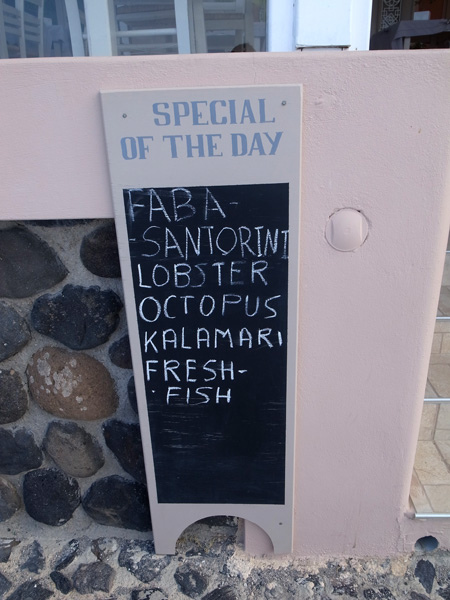 SPECIAL
OF THE DAY
FABA-
-SANTORINI
LOBSTER
OCTOPUS
KALAMARI
FRESH-
FISH